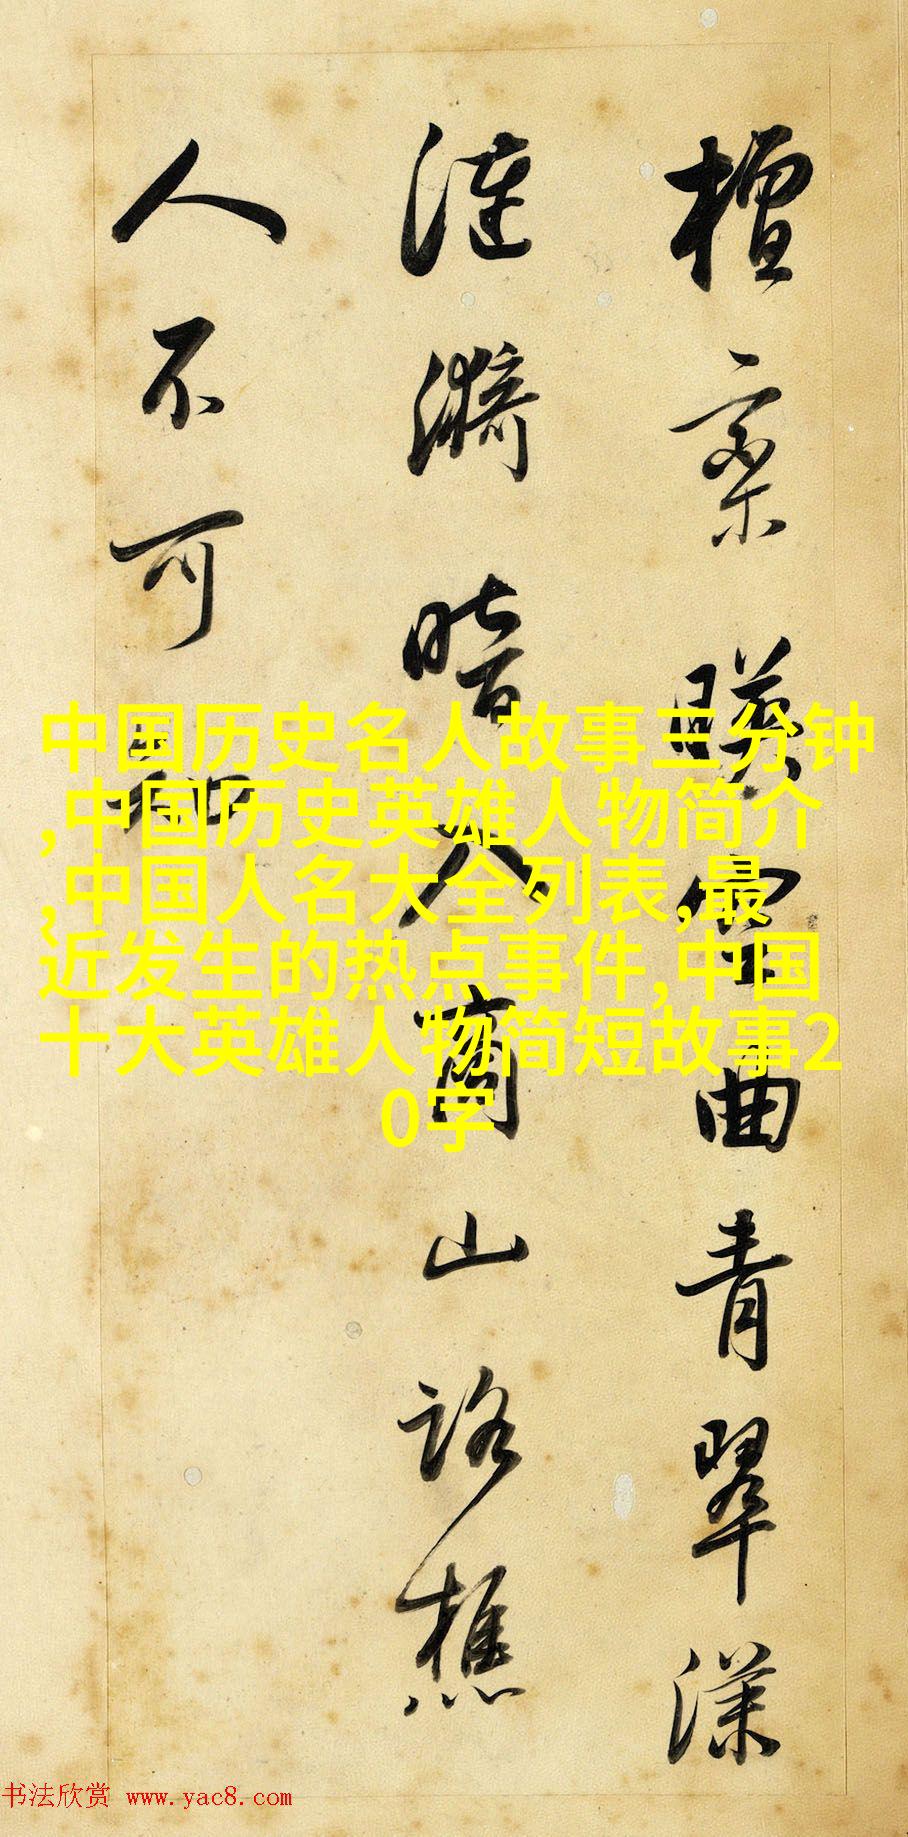 檀欒暎空曲青翠漾
漣漪暗入商山路樵
人不可知
中国历史名人故事三分钟
,中国历史英雄人物简介
,中国人名大全列表,最
近发生的热点事件,中国
十大英雄人物简短故事2
0字
书法欣赏 www.yac8.com